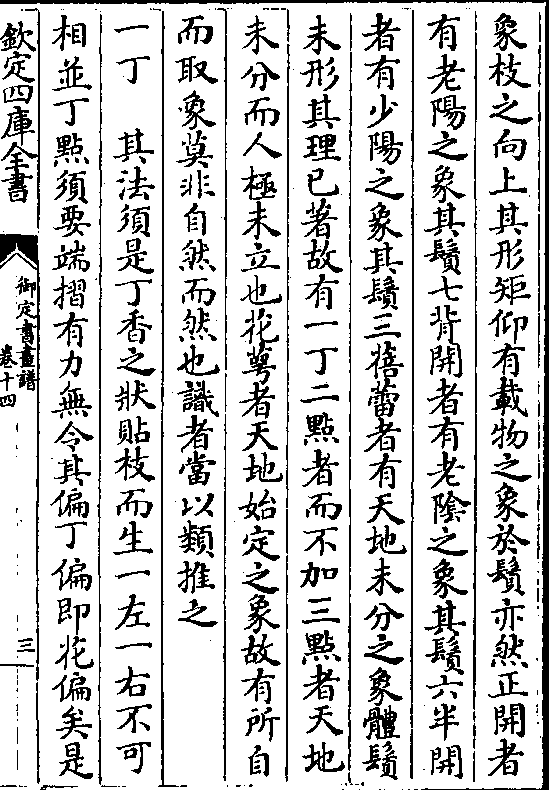 象枝之向上其形矩仰有載物之象於鬚亦然正開者
有老陽之象其鬚七背開者有老陰之象其鬚六半開
者有少陽之象其鬚三蓓蕾者有天地未分之象體鬚
未形其理已著故有一丁二點者而不加三點者天地
未分而人極未立也花萼者天地始定之象故有所自
而取象莫非自然而然也識者當以類推之
一丁　其法須是丁香之狀貼枝而生一左一右不可
相並丁點須要端摺有力無令其偏丁偏即花偏矣是
欽定四庫全書
御定書畫譜
卷十四
三